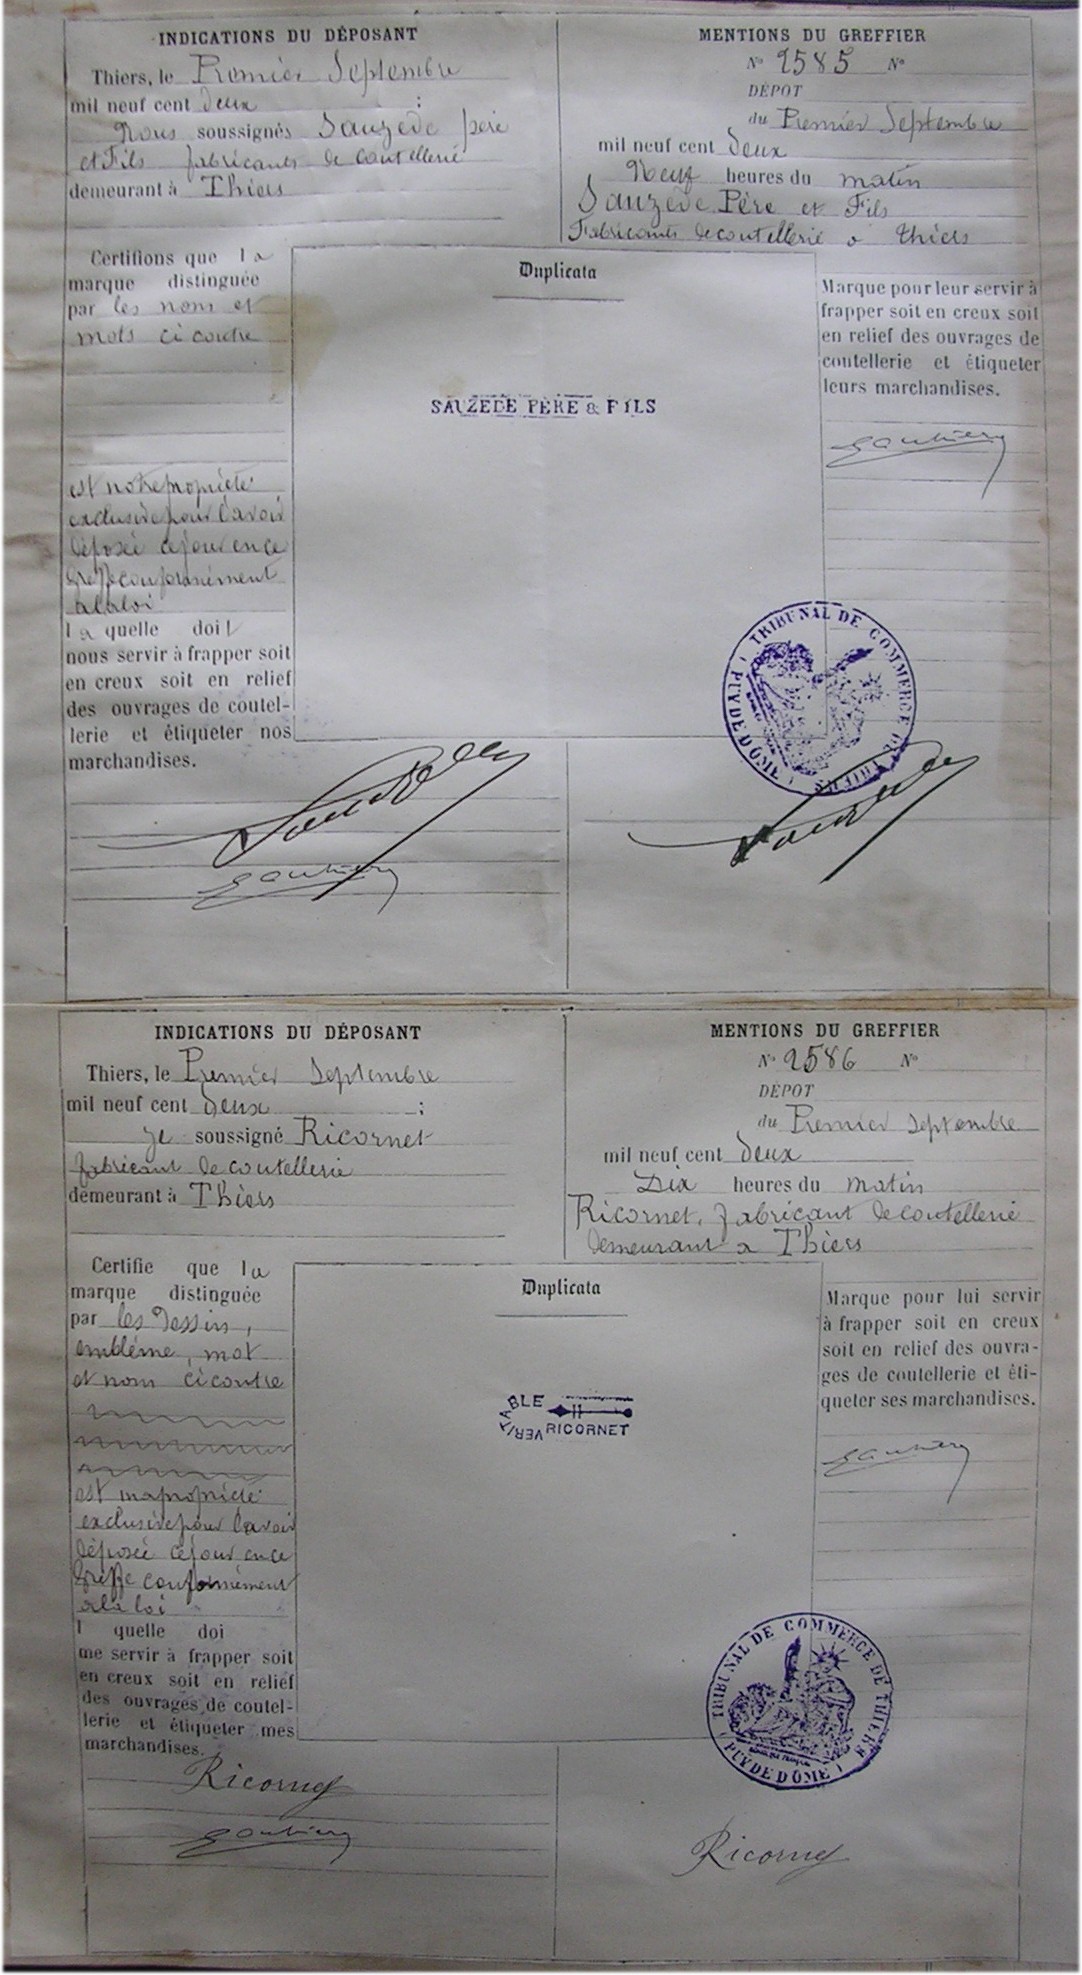 INDICATIONS DU DÉPOSANT
Thiers, le Premier Septembre
mil neuf cent deux ;
Nous soussignés Sauzède père
et Fils fabricants de coutellerie
demeurant à Thiers
MENTIONS DU GREFFIER
N° 2585 N°
DÉPOT
du Premier Septembre
mil neuf cent deux
Neuf heures du matin
Sauzède Père et Fils
Fabricants de coutellerie à Thiers
Certifions que la
marque distinguée
par les nom et
mots ci contre
est notre propriété
exclusive pour l'avoir
déposée ce jour en ce
greffe conformément
à la loi
la quelle doit
nous servir à frapper soit
en creux soit en relief
des ouvrages de coutel-
lerie et étiqueter nos
marchandises.
Duplicata
SAUZEDE PÈRE & FILS
Marque pour leur servir à
frapper soit en creux soit
en relief des ouvrages de
coutellerie et étiqueter
leurs marchandises.
TRIBUNAL DE COMMERCE DE THIERS
(PUY DE DOME)
INDICATIONS DU DÉPOSANT
Thiers, le Premier Septembre
mil neuf cent deux ;
Je soussigné Ricornet
fabricant de coutellerie
demeurant à Thiers
MENTIONS DU GREFFIER
N° 2586 N°
DÉPOT
du Premier septembre
mil neuf cent deux
Dix heures du matin
Ricornet, fabricant de coutellerie
demeurant a Thiers
Certifie que la
marque distinguée
par les Dessin,
emblème, mot
et nom ci contre
est ma propriété
exclusive pour l'avoir
déposée ce jour en ce
greffe conformément
à la loi
l quelle doi
me servir à frapper soit
en creux soit en relief
des ouvrages de coutel-
lerie et étiqueter mes
marchandises.
Duplicata
VERITABLE
RICORNET
Marque pour lui servir
à frapper soit en creux
soit en relief des ouvra-
ges de coutellerie et éti-
queter ses marchandises.
TRIBUNAL DE COMMERCE DE THIERS
(PUY DE DOME)